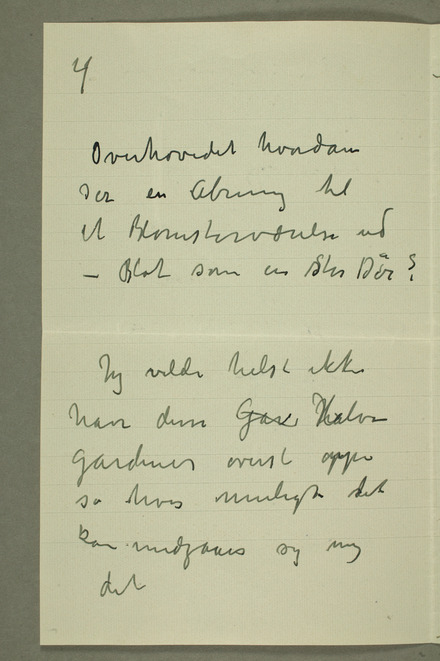 4
Overhovedet hvordan
ser en Åbning til
et Blomsterværelse ud
– Blot som en stor Dör?
Jeg vilde helst ikke
have disse Gar Halve
gardiner överst oppe
så hvis muligt det
kan undgaaes sig mig
det